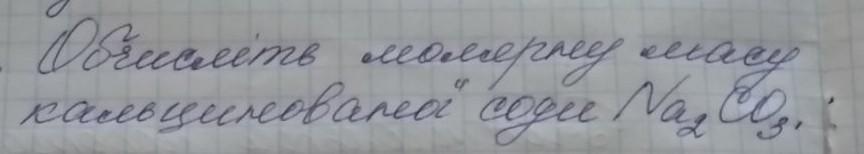 Обчисліть молярну масу
кальцинованої соди Na₂CO₃.